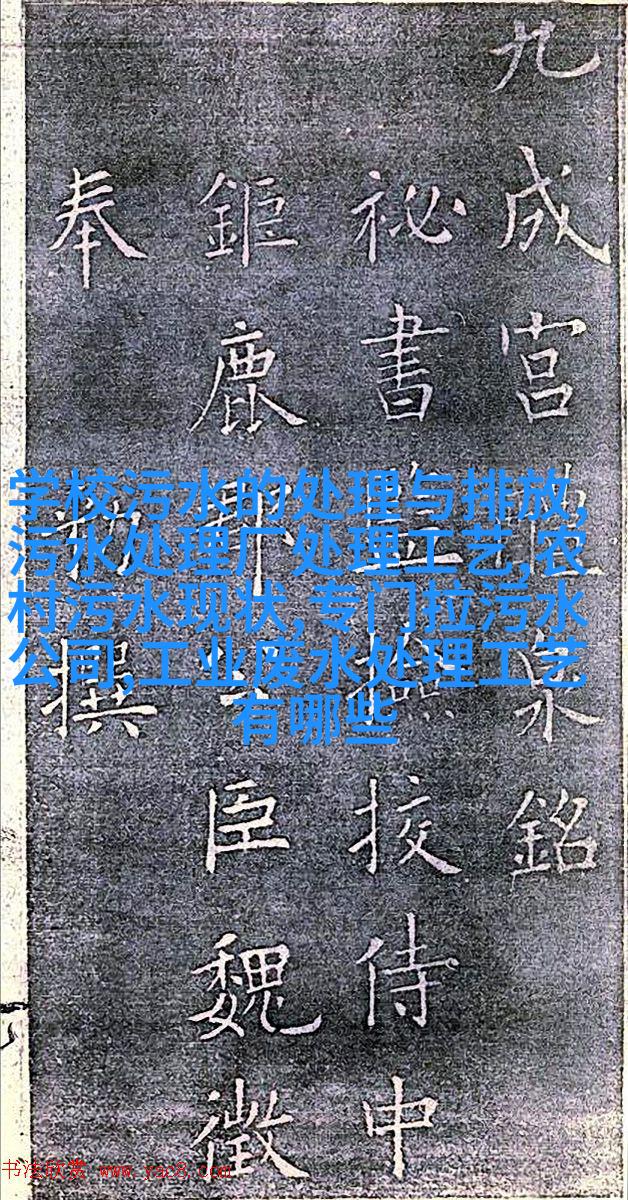 九成宮醴泉銘
祕書監撿挍侍中
鉅鹿郡公臣魏徵
奉勅撰
学校污水的处理与排放,
污水处理厂处理工艺,农
村污水现状,专门拉污水
公司,工业废水处理工艺
有哪些
书法欣赏 www.yac8.com